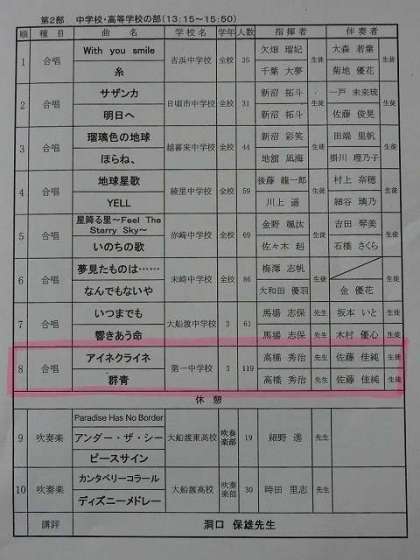 第2部　中学校・高等学校の部(13:15～15:50)
順 種目 曲名 学校名 学年 人数 指揮者 伴奏者
1 合唱 With you smile 吉浜中学校 全校 35 矢畑 瑠妃 生徒 大森 若葉 生徒
糸 千葉 大夢 菊地 優花
2 合唱 サザンカ 日頃市中学校 全校 31 新沼 拓斗 生徒 一戸 未来 生徒
明日へ 新沼 拓斗 佐藤 俊晃
3 合唱 瑠璃色の地球 越喜来中学校 全校 44 新沼 彩笑 生徒 田端 里帆 生徒
ほらね、 地舘 凪海 掛川 理乃子
4 合唱 地球星歌 綾里中学校 全校 59 後藤 龍一郎 生徒 村上 奈穂 生徒
YELL 川上 遥 細谷 璃乃
5 合唱 星降る里～Feel The Starry Sky～ 赤崎中学校 全校 69 金野 颯汰 生徒 吉田 琴美 生徒
いのちの歌 佐々木 石橋 さくら
6 合唱 夢見たものは…… 末崎中学校 全校 86 梅澤 志帆 生徒
なんでもないや 大和田 優羽 金 優花 生徒
7 合唱 いつまでも 大船渡中学校 3 61 馬場 志保 先生 坂本 いと 生徒
響きあう命 馬場 志保 木村 優心
8 合唱 アイネクライネ 第一中学校 3 119 高橋 秀治 先生 佐藤 佳純 生徒
群青 高橋 秀治 先生 佐藤 佳純 生徒
休憩
9 吹奏楽 Paradise Has No Border 大船渡東高校 吹奏楽部 19 細野 遥 先生
アンダー・ザ・シー
ピースサイン
10 吹奏楽 カンタベリーコラール 大船渡高校 吹奏楽部 30 時田 里志 先生
ディズニーメドレー
講評 洞口 保雄先生